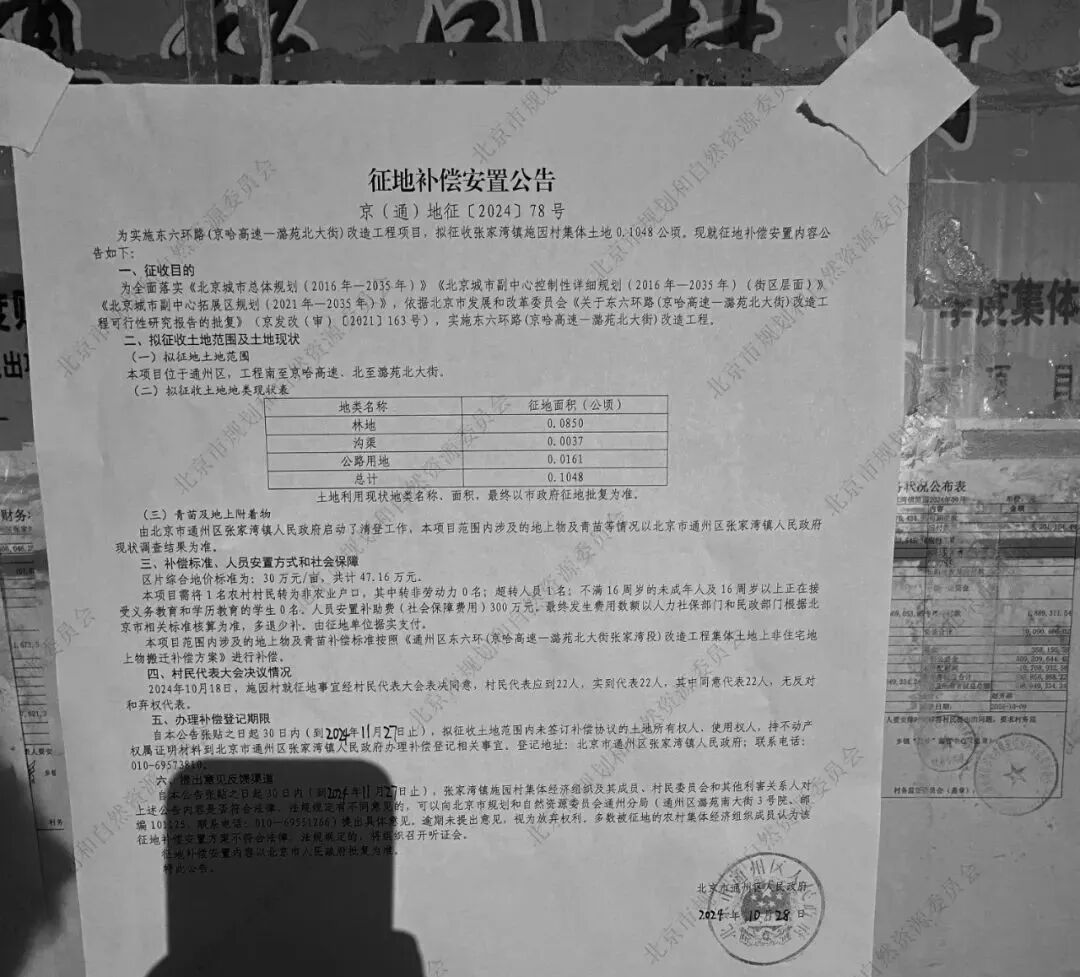 征地补偿安置公告
京（通）地征〔2024〕78号
为实施东六环路(京哈高速—潞苑北大街)改造工程项目，拟征收张家湾镇施园村集体土地0.1048公顷。现就征地补偿安置内容公
告如下：
一、征收目的
为全面落实《北京城市总体规划（2016年—2035年）》《北京城市副中心控制性详细规划（2016年—2035年）（街区层面）》
《北京城市副中心拓展区规划（2021年—2035年）》，依据北京市发展和改革委员会《关于东六环路(京哈高速—潞苑北大街)改造工
程可行性研究报告的批复》（京发改（审）〔2021〕163号），实施东六环路(京哈高速—潞苑北大街)改造工程。
二、拟征收土地范围及土地现状
（一）拟征地土地范围
本项目位于通州区，工程南至京哈高速、北至潞苑北大街。
（二）拟征收土地地类现状表
地类名称 征地面积（公顷）
林地 0.0850
沟渠 0.0037
公路用地 0.0161
总计 0.1048
土地利用现状地类名称、面积，最终以市政府征地批复为准。
（三）青苗及地上附着物
由北京市通州区张家湾镇人民政府启动了清登工作，本项目范围内涉及的地上物及青苗等情况以北京市通州区张家湾镇人民政府
现状调查结果为准。
三、补偿标准、人员安置方式和社会保障
区片综合地价标准为：30万元/亩，共计47.16万元。
本项目需将1名农村村民转为非农业户口，其中转非劳动力0名；超转人员1名；不满16周岁的未成年人及16周岁以上正在接
受义务教育和学历教育的学生0名。人员安置补助费（社会保障费用）300万元，最终发生费用数额以人力社保部门和民政部门根据北
京市相关标准核算为准，多退少补。由征地单位据实支付。
本项目范围内涉及的地上物及青苗补偿标准按照《通州区东六环(京哈高速—潞苑北大街张家湾段)改造工程集体土地上非住宅地
上物搬迁补偿方案》进行补偿。
四、村民代表大会决议情况
2024年10月18日，施园村就征地事宜经村民代表大会表决同意，村民代表应到22人，实到代表22人，其中同意代表22人，无反对
和弃权代表。
五、办理补偿登记期限
自本公告张贴之日起30日内（到2024年11月27日止），拟征收土地范围内未签订补偿协议的土地所有权人、使用权人，持不动产
权属证明材料到北京市通州区张家湾镇人民政府办理补偿登记相关事宜。登记地址：北京市通州区张家湾镇人民政府；联系电话：
010-69573810。
六、提出意见反馈渠道
自本公告张贴之日起30日内（到2024年11月27日止），张家湾镇施园村集体经济组织及其成员、村民委员会和其他利害关系人对
上述公告内容是否符合法律、法规规定有不同意见的，可以向北京市规划和自然资源委员会通州分局（通州区潞苑南大街3号院、邮
编101125、联系电话：010-69551266）提出具体意见。逾期未提出意见，视为放弃权利。多数被征地的农村集体经济组织成员认为该
征地补偿安置方案不符合法律、法规规定的，将组织召开听证会。
征地补偿安置内容以北京市人民政府批复为准。
特此公告。
北京市通州区人民政府
2024年10月28日
北京市规划和自然资源委员会
季度集体
项目
务状况公布表
内容 金额
财务:
村务
村务监督委员会（盖章）：